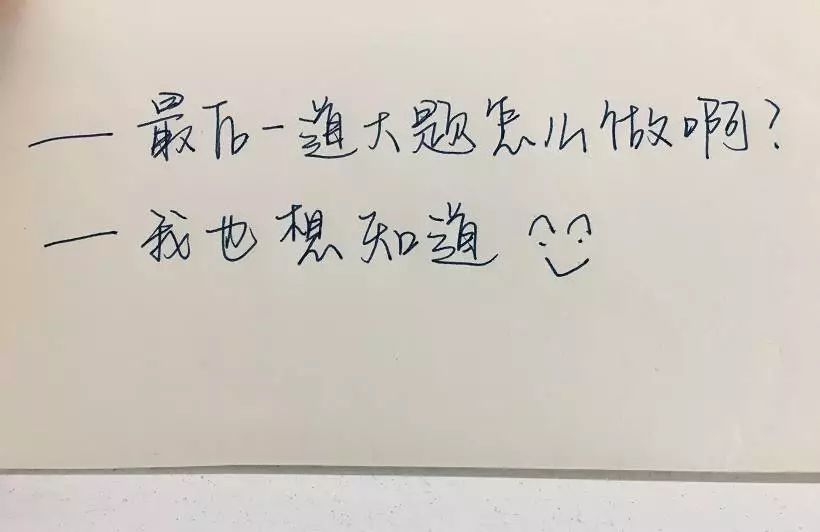 — 最后一道大题怎么做啊?
— 我也想知道